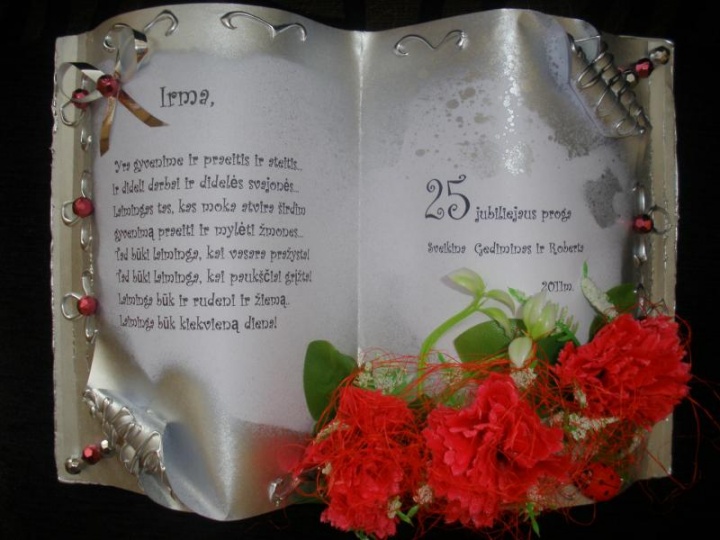 Irma,
Yra gyvenime ir praeitis ir ateitis...
ir dideli darbai ir didelės svajonės...
Laimingas tas, kas moka atvira širdim
gyvenimą praeiti ir mylėti žmones...
Tad būki laiminga, kai vasara pražysta!
Tad būki laiminga, kai paukščiai grįžta!
Laiminga būk ir rudenį ir žiemą.
Laiminga būk kiekvieną diena!
25 jubiliejaus proga
Sveikina Gediminas ir Roberta
2011m.